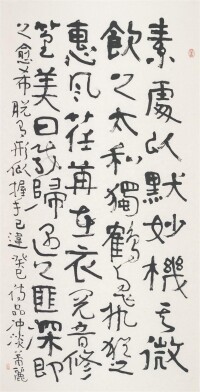 素處以默妙機其微
飲之太和獨鶴與飛猶之
惠風荏苒在衣閱音修
篁美曰載歸遇之匪深即
之愈希脫有形似握手已違 癸巳 詩品冲淡